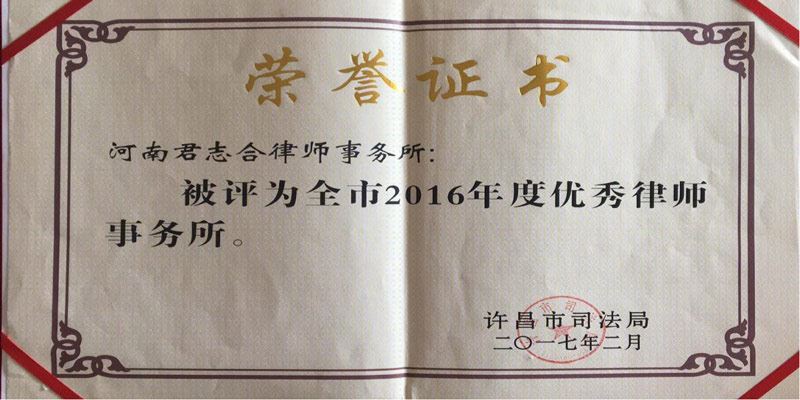 荣誉证书
河南君志合律师事务所：
被评为全市2016年度优秀律师
事务所。
许昌市司法局
二〇一七年二月